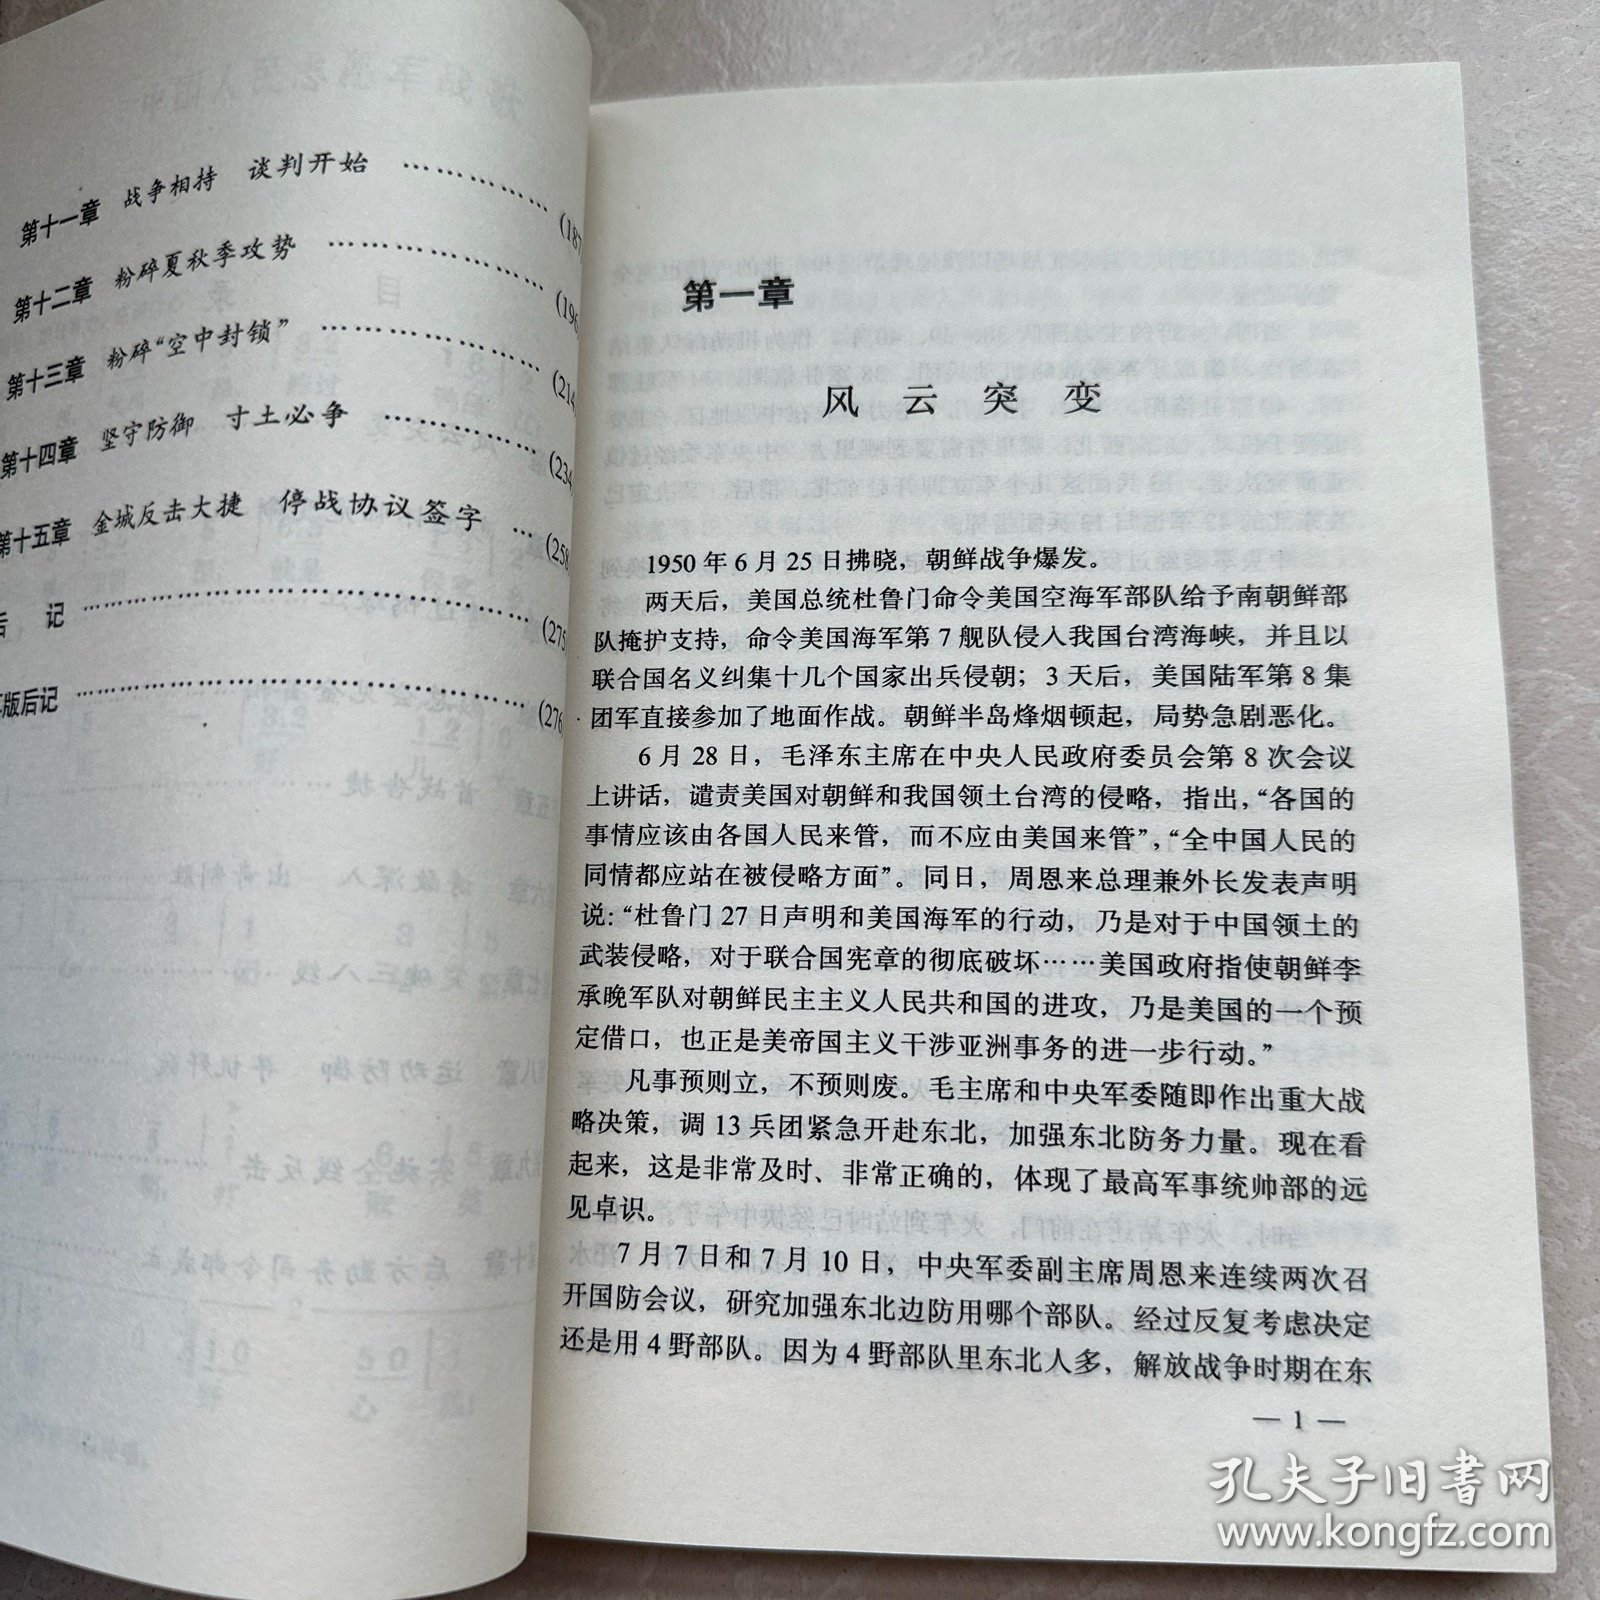 第十一章 战争相持 谈判开始 ……………… (187
第十二章 粉碎夏秋季攻势 ……………………… (196
第十三章 粉碎“空中封锁” ……………………… (214
第十四章 坚守防御 寸土必争 ………………… (234
第十五章 金城反击大捷 停战协议签字 … (258
后 记 ……………………………………………… (275
版后记 ……………………………………………… (276
第一章
风云突变
1950年6月25日拂晓，朝鲜战争爆发。
两天后，美国总统杜鲁门命令美国空海军部队给予南朝鲜部
队掩护支持，命令美国海军第7舰队侵入我国台湾海峡，并且以
联合国名义纠集十几个国家出兵侵朝；3天后，美国陆军第8集
团军直接参加了地面作战。朝鲜半岛烽烟顿起，局势急剧恶化。
6月28日，毛泽东主席在中央人民政府委员会第8次会议
上讲话，谴责美国对朝鲜和我国领土台湾的侵略，指出，“各国的
事情应该由各国人民来管，而不应由美国来管”，“全中国人民的
同情都应站在被侵略方面”。同日，周恩来总理兼外长发表声明
说：“杜鲁门27日声明和美国海军的行动，乃是对于中国领土的
武装侵略，对于联合国宪章的彻底破坏……美国政府指使朝鲜李
承晚军队对朝鲜民主主义人民共和国的进攻，乃是美国的一个预
定借口，也正是美帝国主义干涉亚洲事务的进一步行动。”
凡事预则立，不预则废。毛主席和中央军委随即作出重大战
略决策，调13兵团紧急开赴东北，加强东北防务力量。现在看
起来，这是非常及时、非常正确的，体现了最高军事统帅部的远
见卓识。
7月7日和7月10日，中央军委副主席周恩来连续两次召
开国防会议，研究加强东北边防用哪个部队。经过反复考虑决定
还是用4野部队。因为4野部队里东北人多，解放战争时期在东
— 1 —
孔夫子旧书网
www.kongfz.com